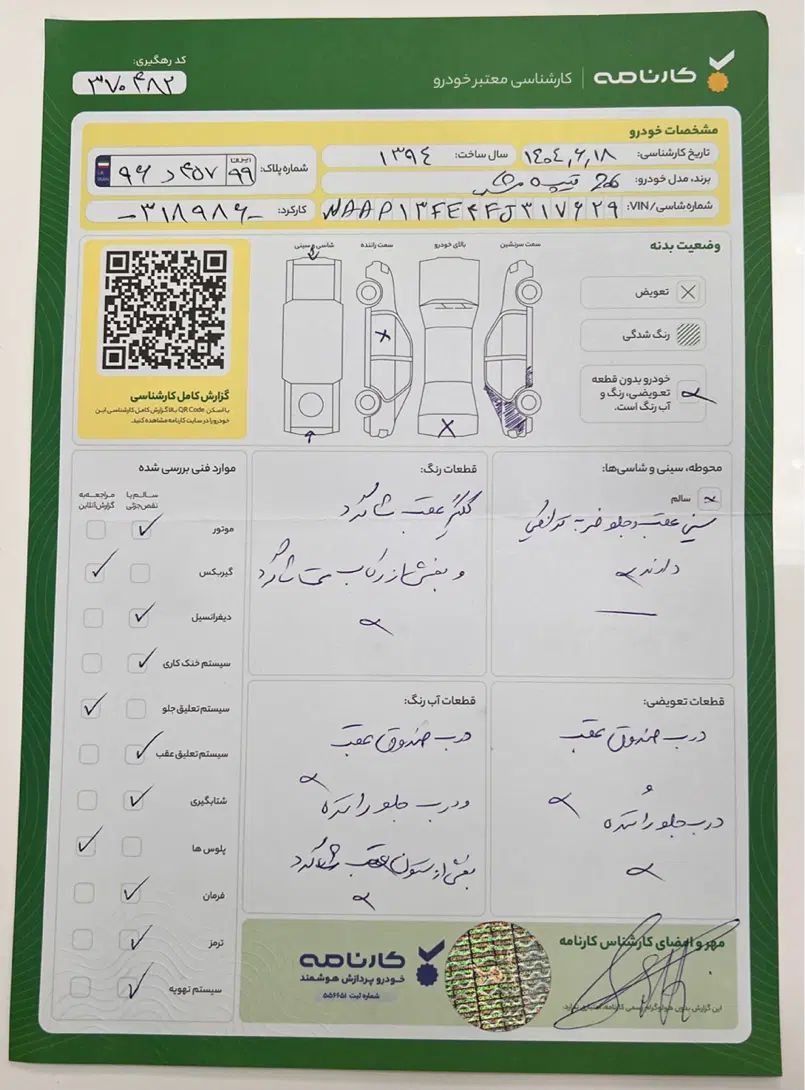 کارنامه | کارشناسی معتبر خودرو
کد رهگیری:
۳۷۰۴۸۲
مشخصات خودرو
تاریخ کارشناسی: ۱۴۰۴,۶,۱۸
سال ساخت: ۱۳۹۴
شماره پلاک: ایران ۹۹ ۴۵۷ د ۹۶
برند، مدل خودرو: 206 تیپ
شماره شاسی/VIN: NAAP۱۳FE۴FJ۳۱۷۶۲۹
کارکرد: -۳۱۸۹۸۶-
وضعیت بدنه
سمت سرنشین
بالای خودرو
سمت راننده
شاسی و سینی
تعویض
رنگ شدگی
خودرو بدون قطعه
تعویضی، رنگ و
آب رنگ است.
گزارش کامل کارشناسی
با اسکن QR Code بالا گزارش کامل کارشناسی این
خودرو را در سایت کارنامه مشاهده کنید.
محوطه، سینی و شاسی‌ها:
سالم
سینی عقب و جلو ضربه
دارند
قطعات رنگ:
گلگیر عقب شاگرد
و بخشی از رکاب سمت شاگرد
موارد فنی بررسی شده
سالم یا
نقص جزئی
مراجعه به
گزارش آنلاین
موتور
گیربکس
دیفرانسیل
سیستم خنک کاری
سیستم تعلیق جلو
سیستم تعلیق عقب
شتابگیری
پلوس ها
فرمان
ترمز
سیستم تهویه
قطعات تعویضی:
درب صندوق عقب
و
درب جلو راننده
قطعات آب رنگ:
درب صندوق عقب
و درب جلو راننده
بخشی از ستون عقب شاگرد
مهر و امضای کارشناس کارنامه
این گزارش بدون هولوگرام رسمی کارنامه، اعتباری ندارد.
کارنامه
خودرو پردازش هوشمند
شماره ثبت ۵۵۶۶۵۱